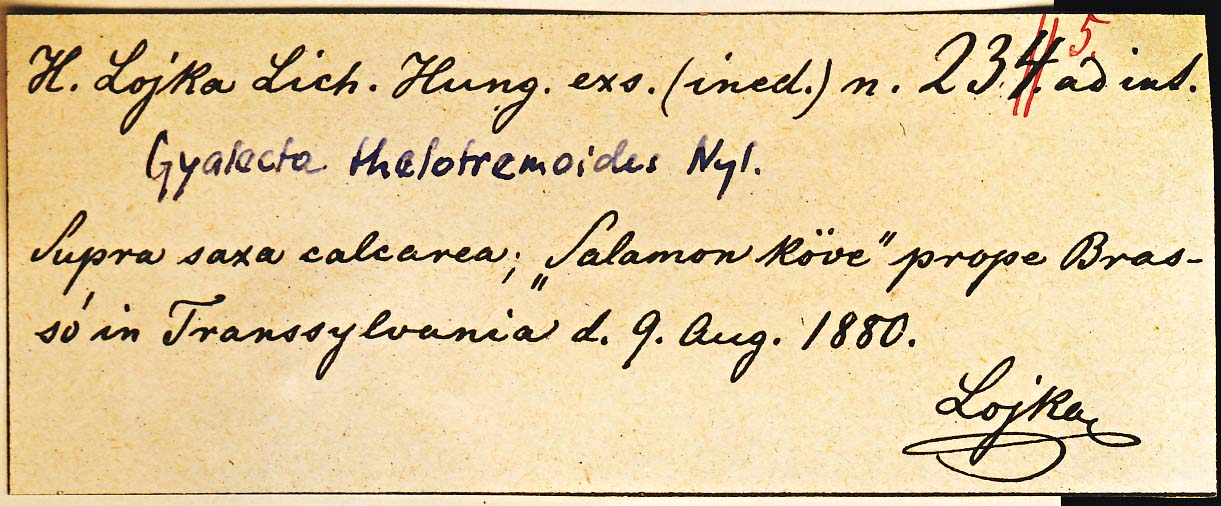 H. Lojka Lich. Hung. exs. (ined.) n. 234. 5. ad int.
Gyalecta thelotremoides Nyl.
Supra saxa calcarea; „Salamon köve" prope Bras-
só in Transsylvania d. 9. Aug. 1880.
Lojka